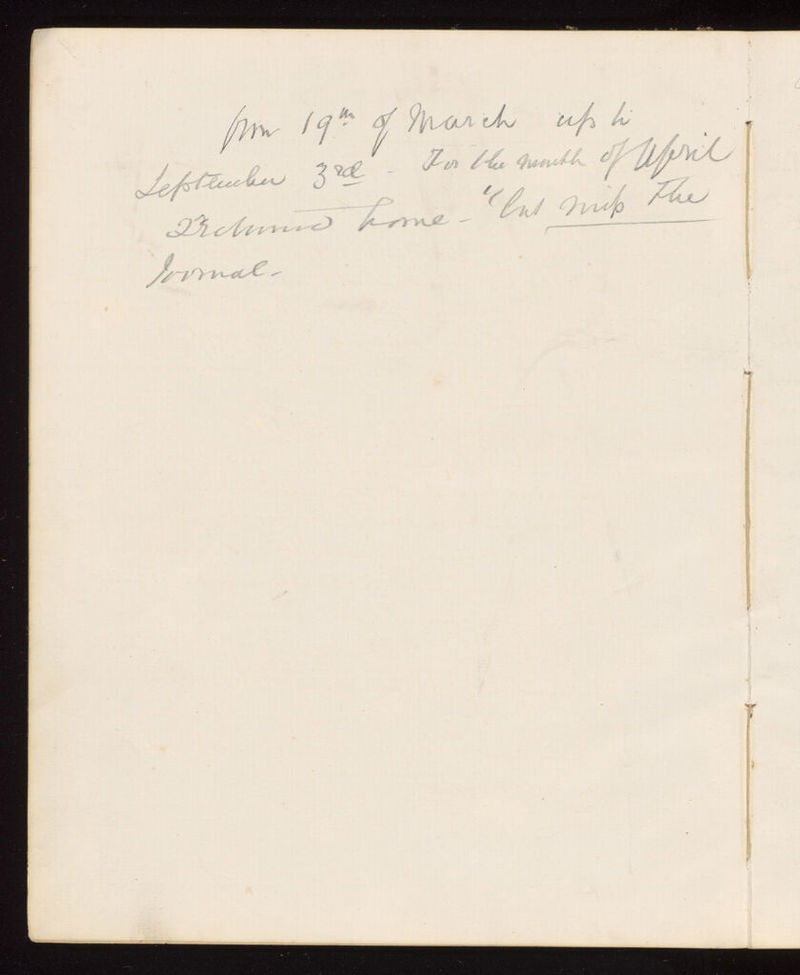 from 19th of March up to
September 3rd - For the month of April
I returned home - but miss the
Journal -